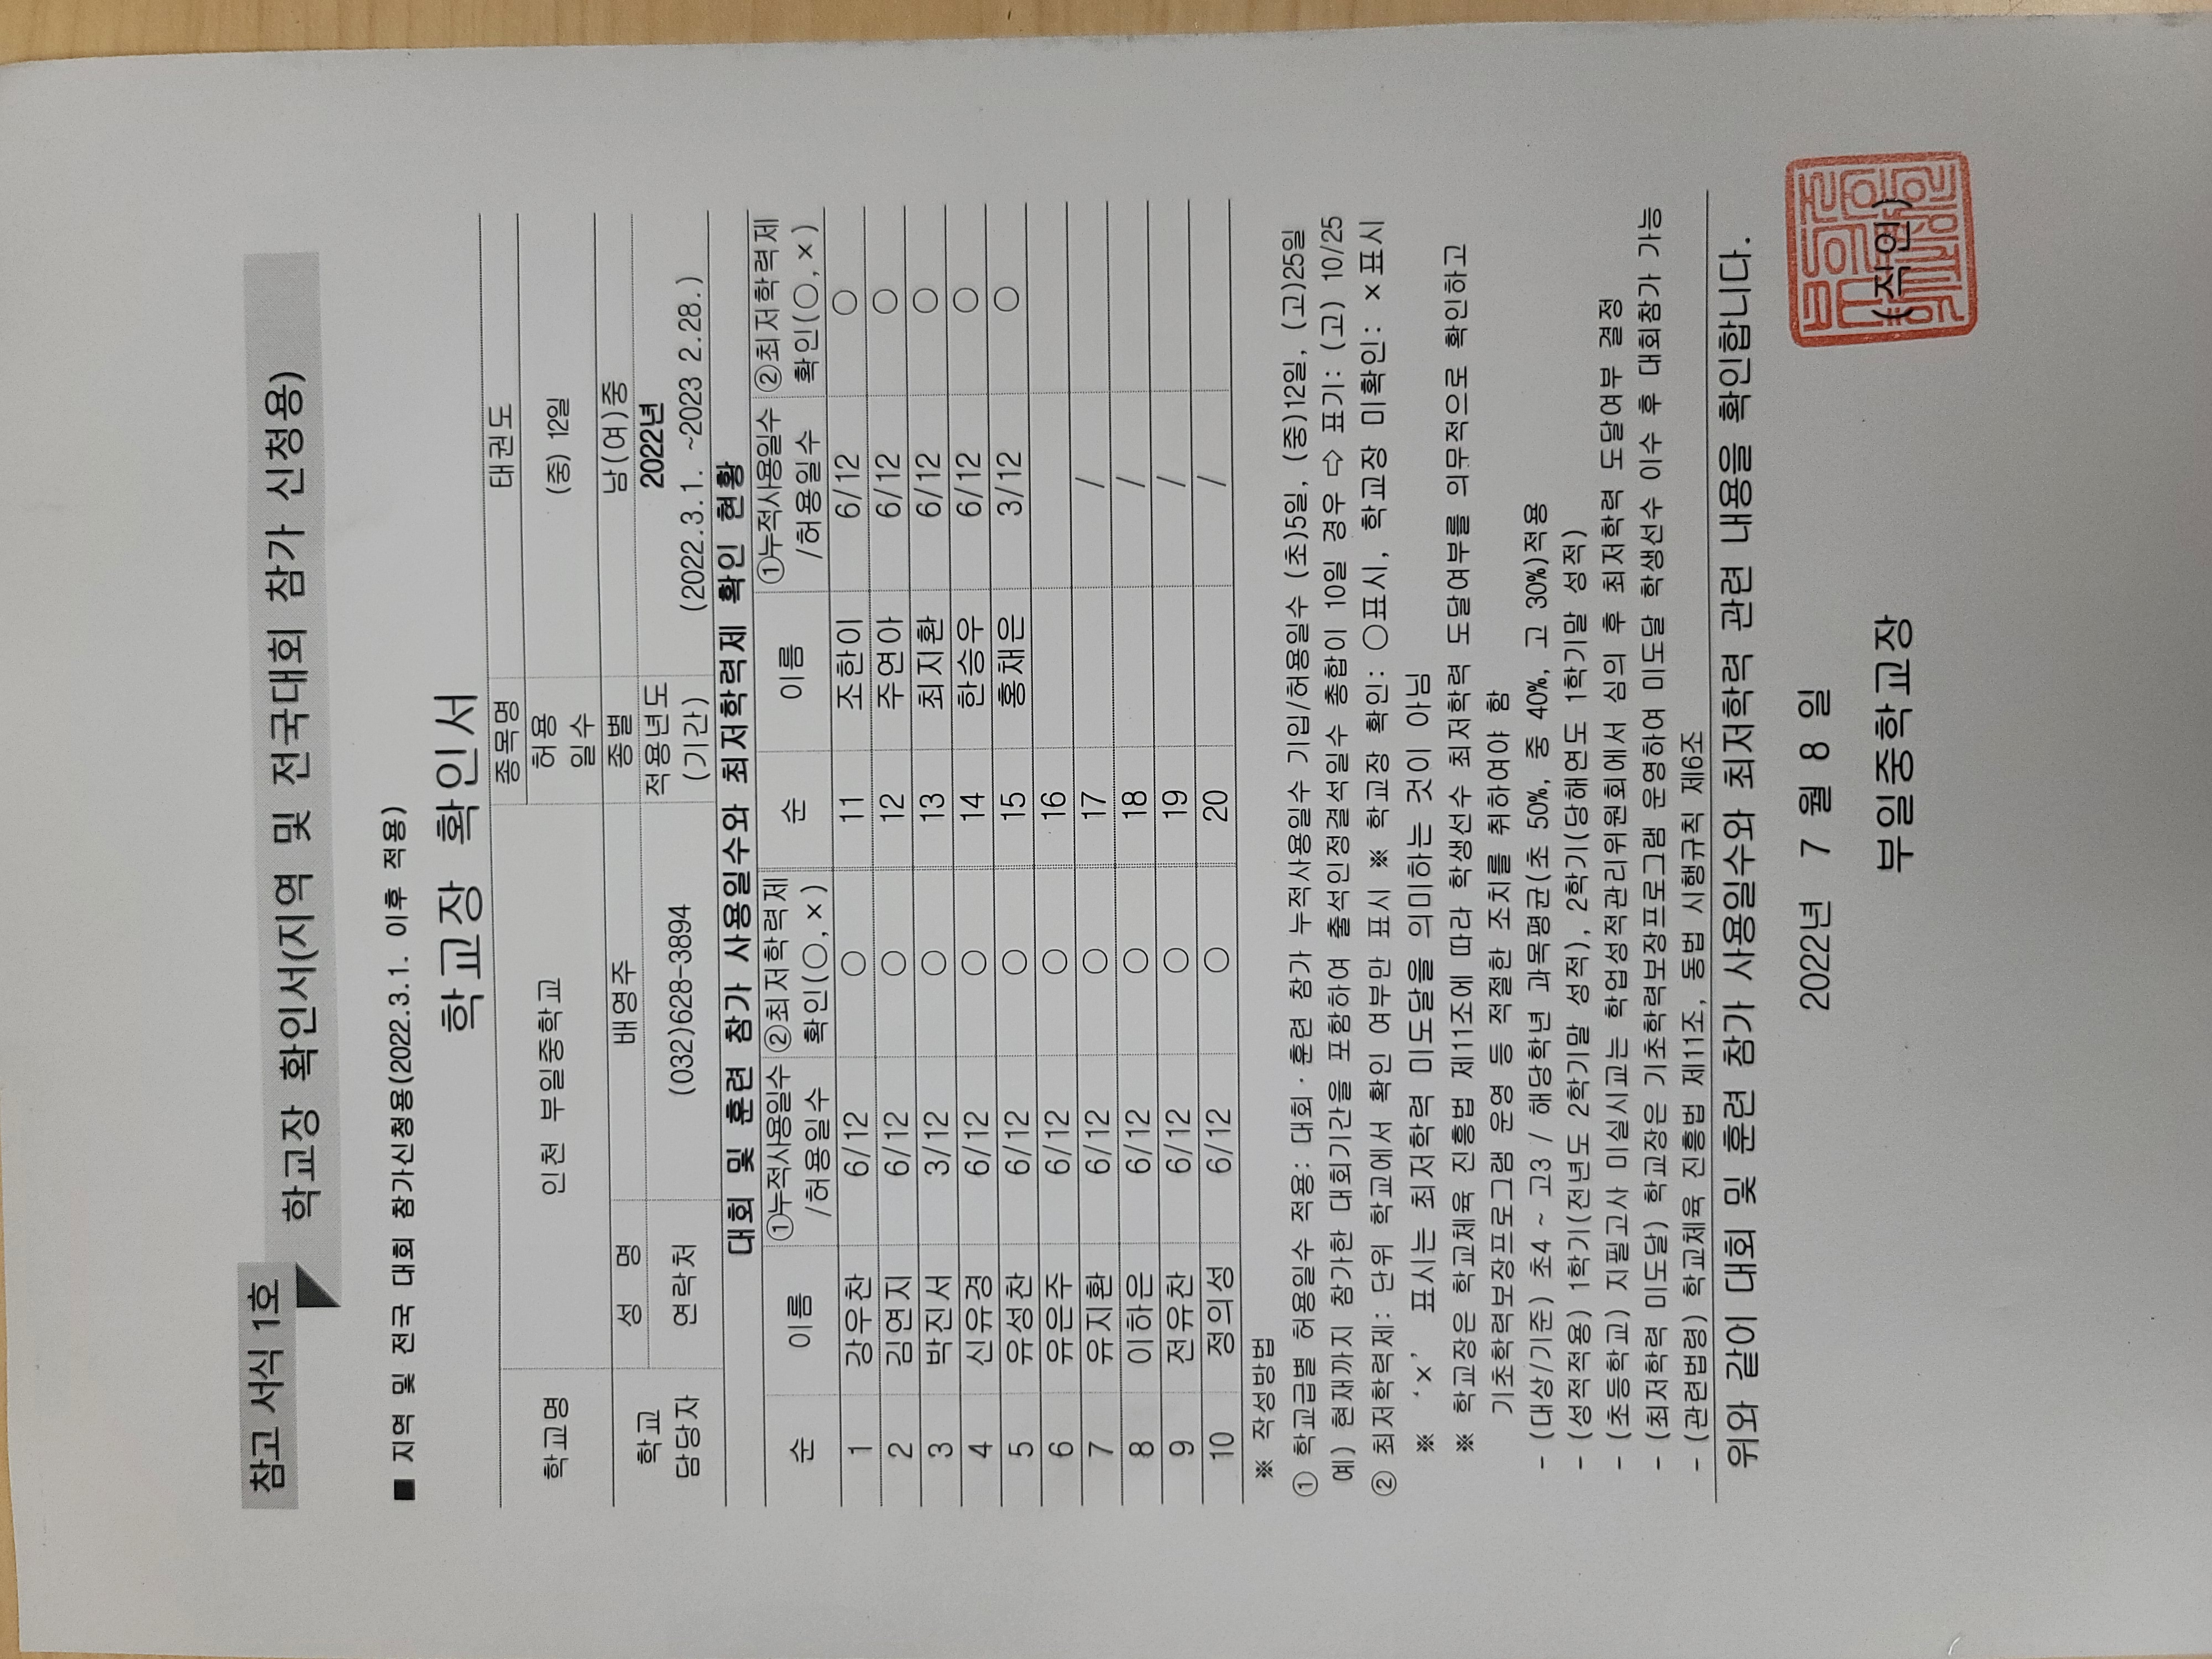 참고 서식 1호
학교장 확인서(지역 및 전국대회 참가 신청용)
■ 지역 및 전국 대회 참가신청용(2022.3.1. 이후 적용)
학교장 확인서
학교명 인천 부일중학교 종목명 태권도
허용 일수 (중) 12일
학교 담당자 성 명 배영주 종별 남(여)중
연락처 (032)628-3894 적용년도 (기간) 2022년
(2022.3.1. ~2023 2.28.)
대회 및 훈련 참가 사용일수와 최저학력제 확인 현황
순 이름 ①누적사용일수 /허용일수 ②최저학력제 확인(○,×) 순 이름 ①누적사용일수 /허용일수 ②최저학력제 확인(○,×)
1 강우찬 6/12 ○ 11 조한이 6/12 ○
2 김연지 6/12 ○ 12 주연아 6/12 ○
3 박진서 3/12 ○ 13 최지환 6/12 ○
4 신유경 6/12 ○ 14 한승우 6/12 ○
5 유성찬 6/12 ○ 15 홍채은 3/12 ○
6 유은주 6/12 ○ 16
7 유지환 6/12 ○ 17 /
8 이하은 6/12 ○ 18 /
9 전유찬 6/12 ○ 19 /
10 정의성 6/12 ○ 20 /
※ 작성방법
① 학교급별 허용일수 적용: 대회·훈련 참가 누적사용일수 기입/허용일수 (초)5일, (중)12일, (고)25일
예) 현재까지 참가한 대회기간을 포함하여 출석인정결석일수 총합이 10일 경우 ⇨ 표기: (고) 10/25
② 최저학력제: 단위 학교에서 확인 여부만 표시 ※ 학교장 확인: ○표시, 학교장 미확인: × 표시
※ '×' 표시는 최저학력 미도달을 의미하는 것이 아님
※ 학교장은 학교체육 진흥법 제11조에 따라 학생선수 최저학력 도달여부를 의무적으로 확인하고
기초학력보장프로그램 운영 등 적절한 조치를 취하여야 함
- (대상/기준) 초4 ~ 고3 / 해당학년 과목평균(초 50%, 중 40%, 고 30%)적용
- (성적적용) 1학기(전년도 2학기말 성적), 2학기(당해연도 1학기말 성적)
- (초등학교) 지필고사 미실시교는 학업성적관리위원회에서 심의 후 최저학력 도달여부 결정
- (최저학력 미도달) 학교장은 기초학력보장프로그램 운영하여 미도달 학생선수 이수 후 대회참가 가능
- (관련법령) 학교체육 진흥법 제11조, 동법 시행규칙 제6조
위와 같이 대회 및 훈련 참가 사용일수와 최저학력 관련 내용을 확인합니다.
2022년 7 월 8 일
부일중학교장 (직인)